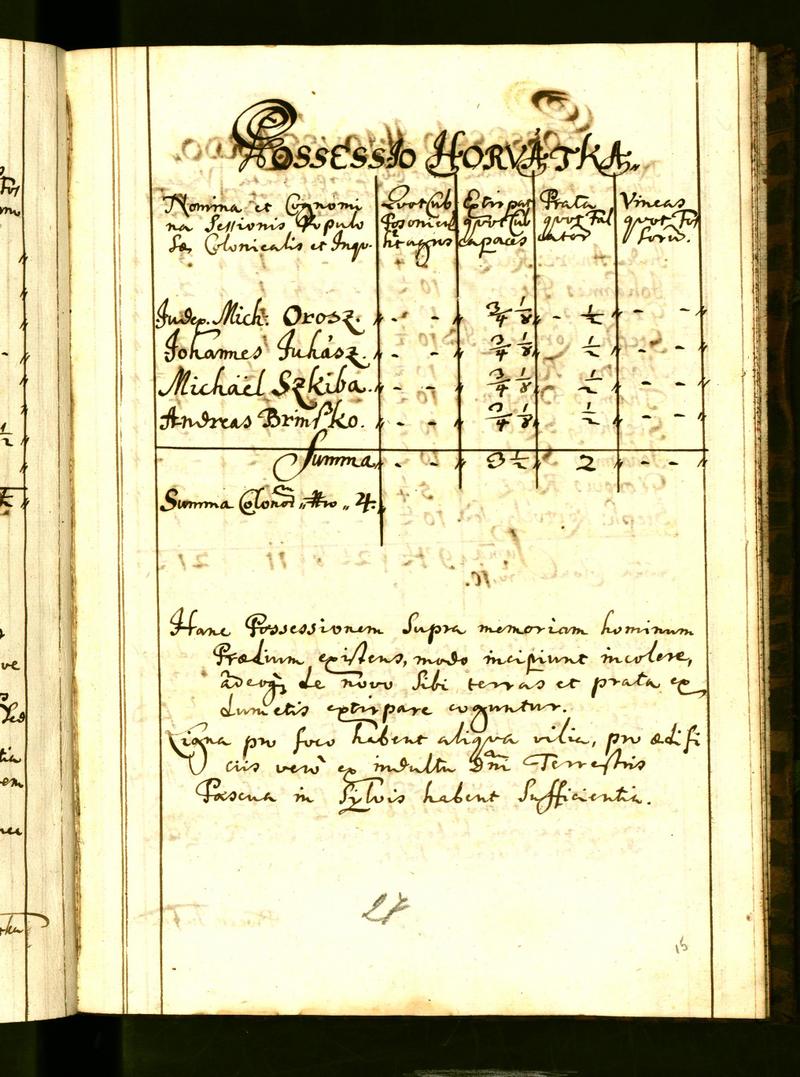 Possessio Horvátka.
Nomina et Cognomi
na Sessionis Populo
sæ Colonicalis et Inqu.
Quot Cub
Posonien
hit agros
Extirpat
quot Cub
capaces
Prata
quot Fal
cator
Vineas
quot Fos
sorū.
Judex. Mich: Orosz. „ - - „ 3/4 1/8 „ - 1/2 „ - - „
Johannes Juhász. „ - - „ 3/4 1/8 „ 1/2 „ - - „
Michäel Szkiba. „ - - „ 3/4 1/8 „ 1/2 „ - - „
Andreas Brinsko. „ - - „ 3/4 1/8 „ 1/2 „ - - „
Summa „ - - „ 3 1/2 „ 2 „ - - „
Summa Colonor „ Nro „ 4.
Hanc Possessionem supra memoriam hominum
Prædium existens, modo incipiunt incolere,
adeoq de novo sibi terras et prata ex
dumetis extirpare coguntur.
Ligna pro foco habent aliqua vilia, pro ædifi
ciis verò ex indultu Dni Terrestris
Pascua in Sylvis habent sufficientia.
27
15